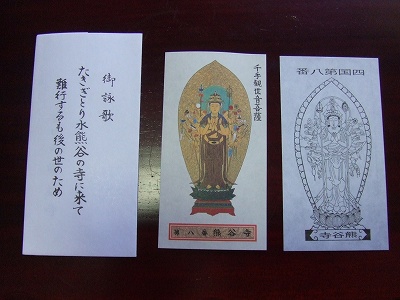 御詠歌
たきぎとり水熊谷の寺に来て
難行するも後の世のため
千手観世音菩薩
第八番 熊谷寺
番八第国四
寺谷熊